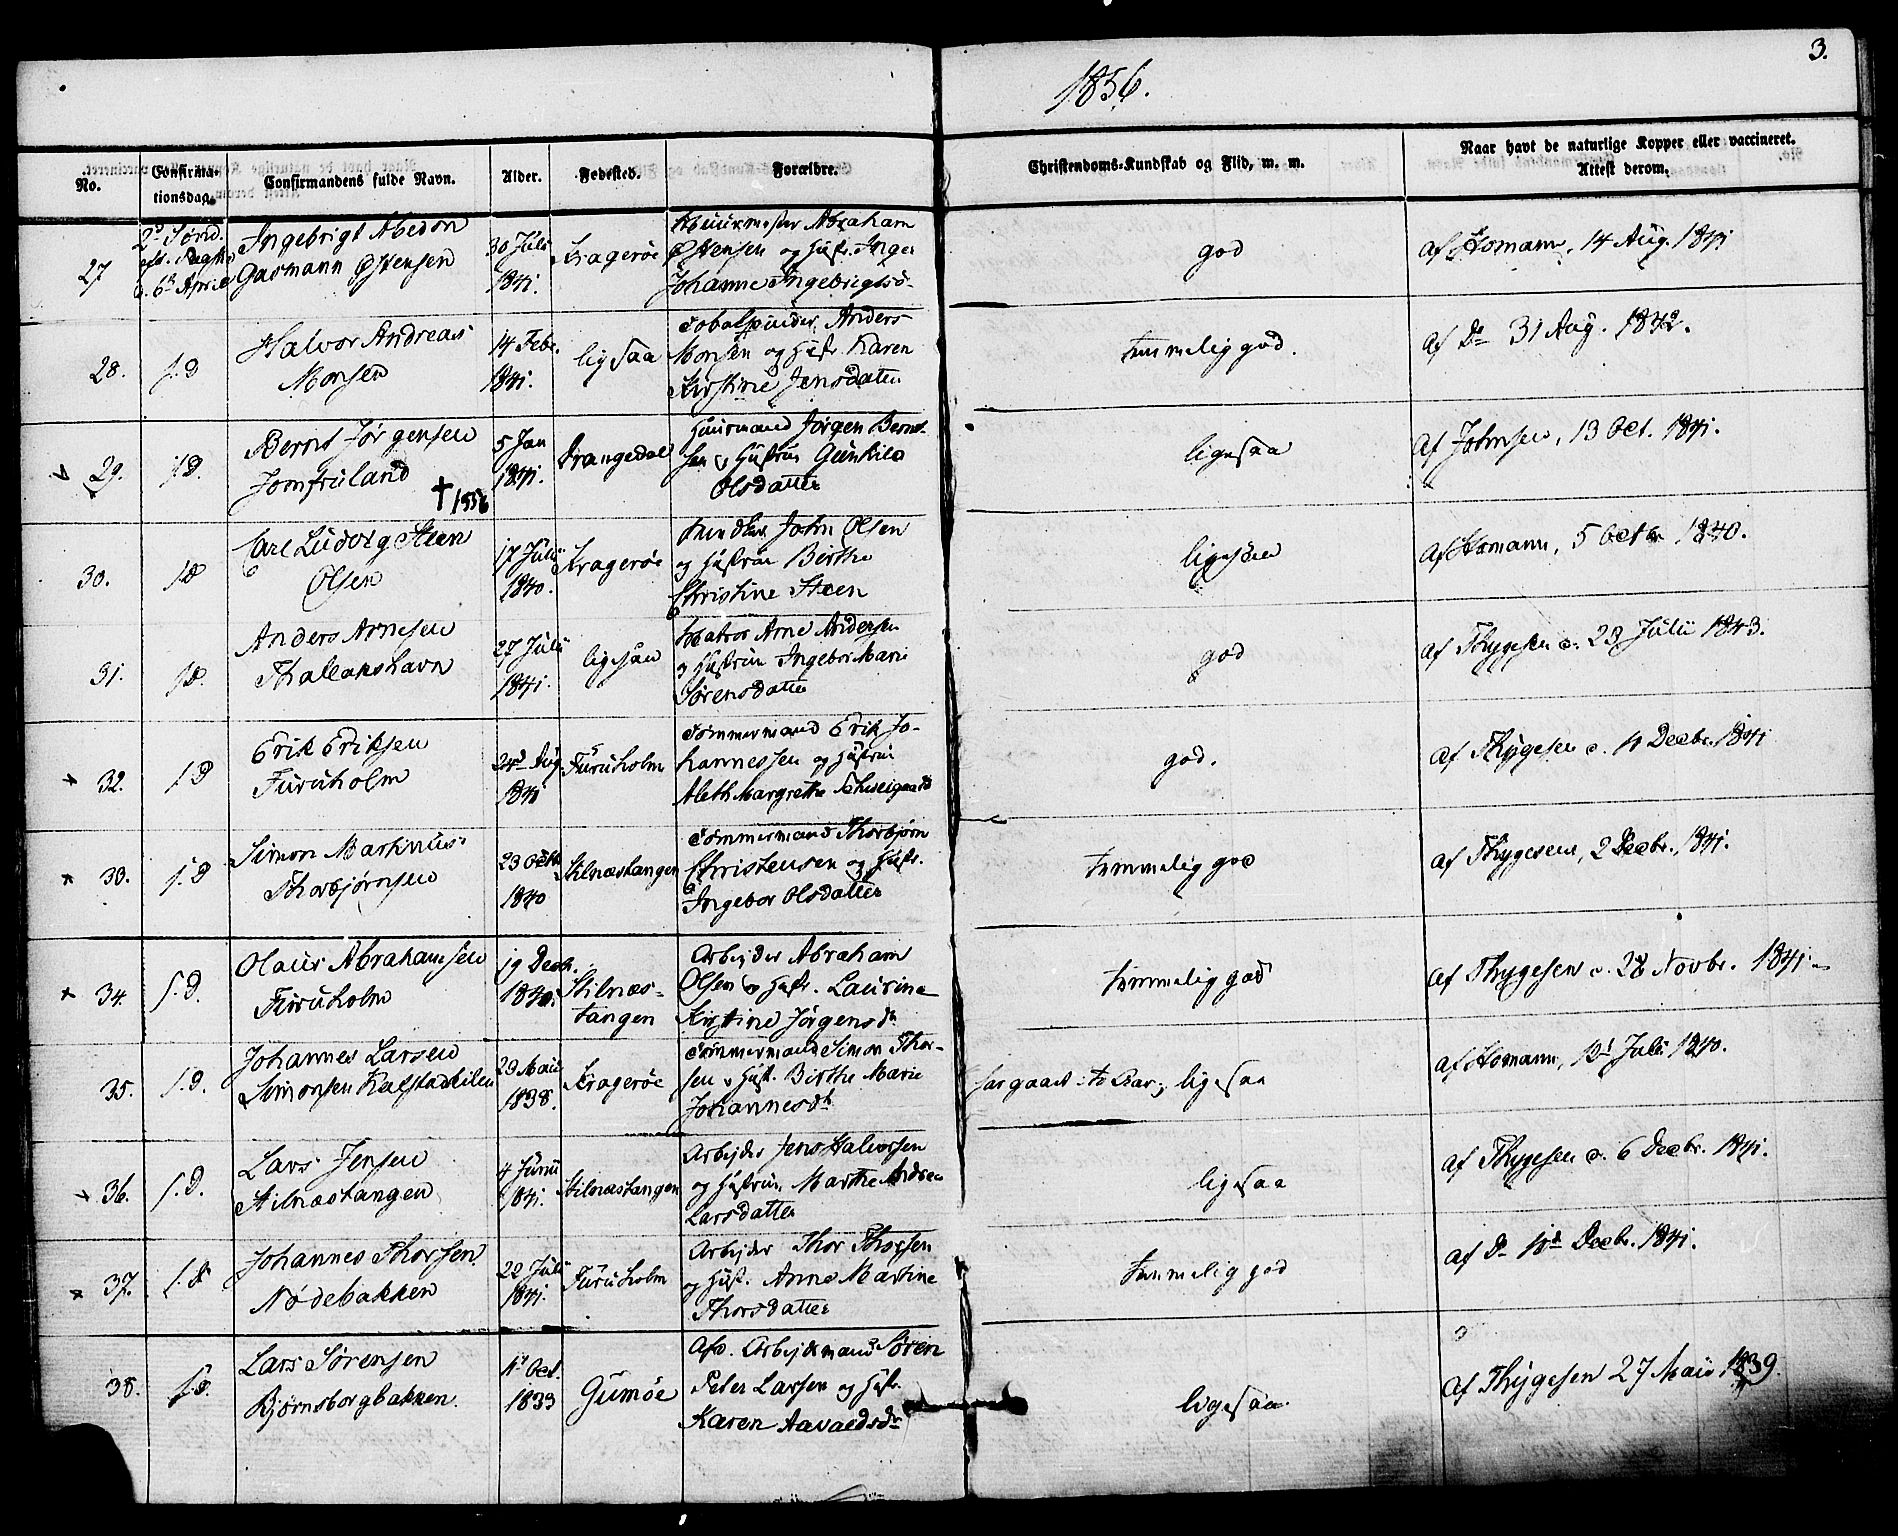 3.
1856.
No. Confirmationsdag. Confirmandens fulde Navn. Alder. Fødested. Forældre. Christendoms-Kundskab og Flid, m. m. Naar havt de naturlige Kopper eller vaccineret. Attest derom.
27 6. April Ingebrigt Abedon Gasmann Østensen 30 Juli 1841. Kragerøe Abraham Østensen og Hustr. Inger Johanne god af Homann, 14 Aug. 1841
28. s. d Halvor Andreas Monsen 14 Febr. 1841. ligesaa Anders Monsen og Hustr. Karen Kirstine Jensdatter temmelig god. af Do 31 Aug. 1842.
29. s. D. Bernt Jørgensen Jomfruland † 1856 5 Jan 1841. Drangedal Huusmand Jørgen Berntsen og Hustru Gunhild Olsdatter ligesaa af Johnsen, 13 Oct. 1841.
30. s. D Carl Ludvig Steen Olsen 17 Juli 1840. Kragerøe John Olsen og Hustrue Birthe Christine Steen ligesaa af Homann, 5 Octbr 1840.
31. s. D. Anders Arnesen Thalleakshavn 27 Julii 1841. ligesaa Matros Arne Andersen og Hustrue Ingebor Marie Sørensdatter god af Thygesen d. 23 Julii 1843.
32. s. D Erik Eriksen Furuholm 24d Aug. 1841 Furuholm Tømmermand Erik Johannessen og Hustrue Aleth Margrethe god. af Thygesen d. 11 Decbr 1841
33. s. D Simon Marknus Thorbjørnsen 23 Octb. 1840 Stilnæstangen Tømmermand Thorbjørn Christensen og Hustr. Ingebor Olsdatter temmelig god af Thygesen, 2 Decbr. 1841.
34. s. D. Olaus Abrahamsen Furuholm 19 Decbr. 1840. Stilnæstangen Arbejder Abraham Olsen og Hustr. Laurine Kirstine Jørgensdtr temmelig god af Thygesen d. 28 Novbr. 1841.
35. s. D. Johannes Larsen Simonsen Kalstadkilen 29 Maii 1838. Kragerøe Tømmermand Simon Thorsen og Hust. Birthe Marie Johannesdtr ligesaa af Homann, Juli 1840.
36. s. D. Lars Jensen Stilnæstangen 4 Junii 1841. Stilnæstangen Arbejder Jens Halvorsen og Hustrue Marthe Andrea Larsdatter ligesaa af Thygesen d. 6 Decbr. 1841.
37. s. D Johannes Thorsen Nødebakken 22 Juli 1841. Furuholm Arbejder Thor Thorsen og Hust. Anne Martine Thorsdatter temmelig god af Do 11d Decbr. 1841.
38. s. D. Lars Sørensen Bjørnsborgbakken. 11d Oct. 1833 Gumøe Arbejdsmand Søren Peter Larsen og Hustr. Karen Aavaldsdtr ligesaa. af Thygesen 27 Maii 1839.